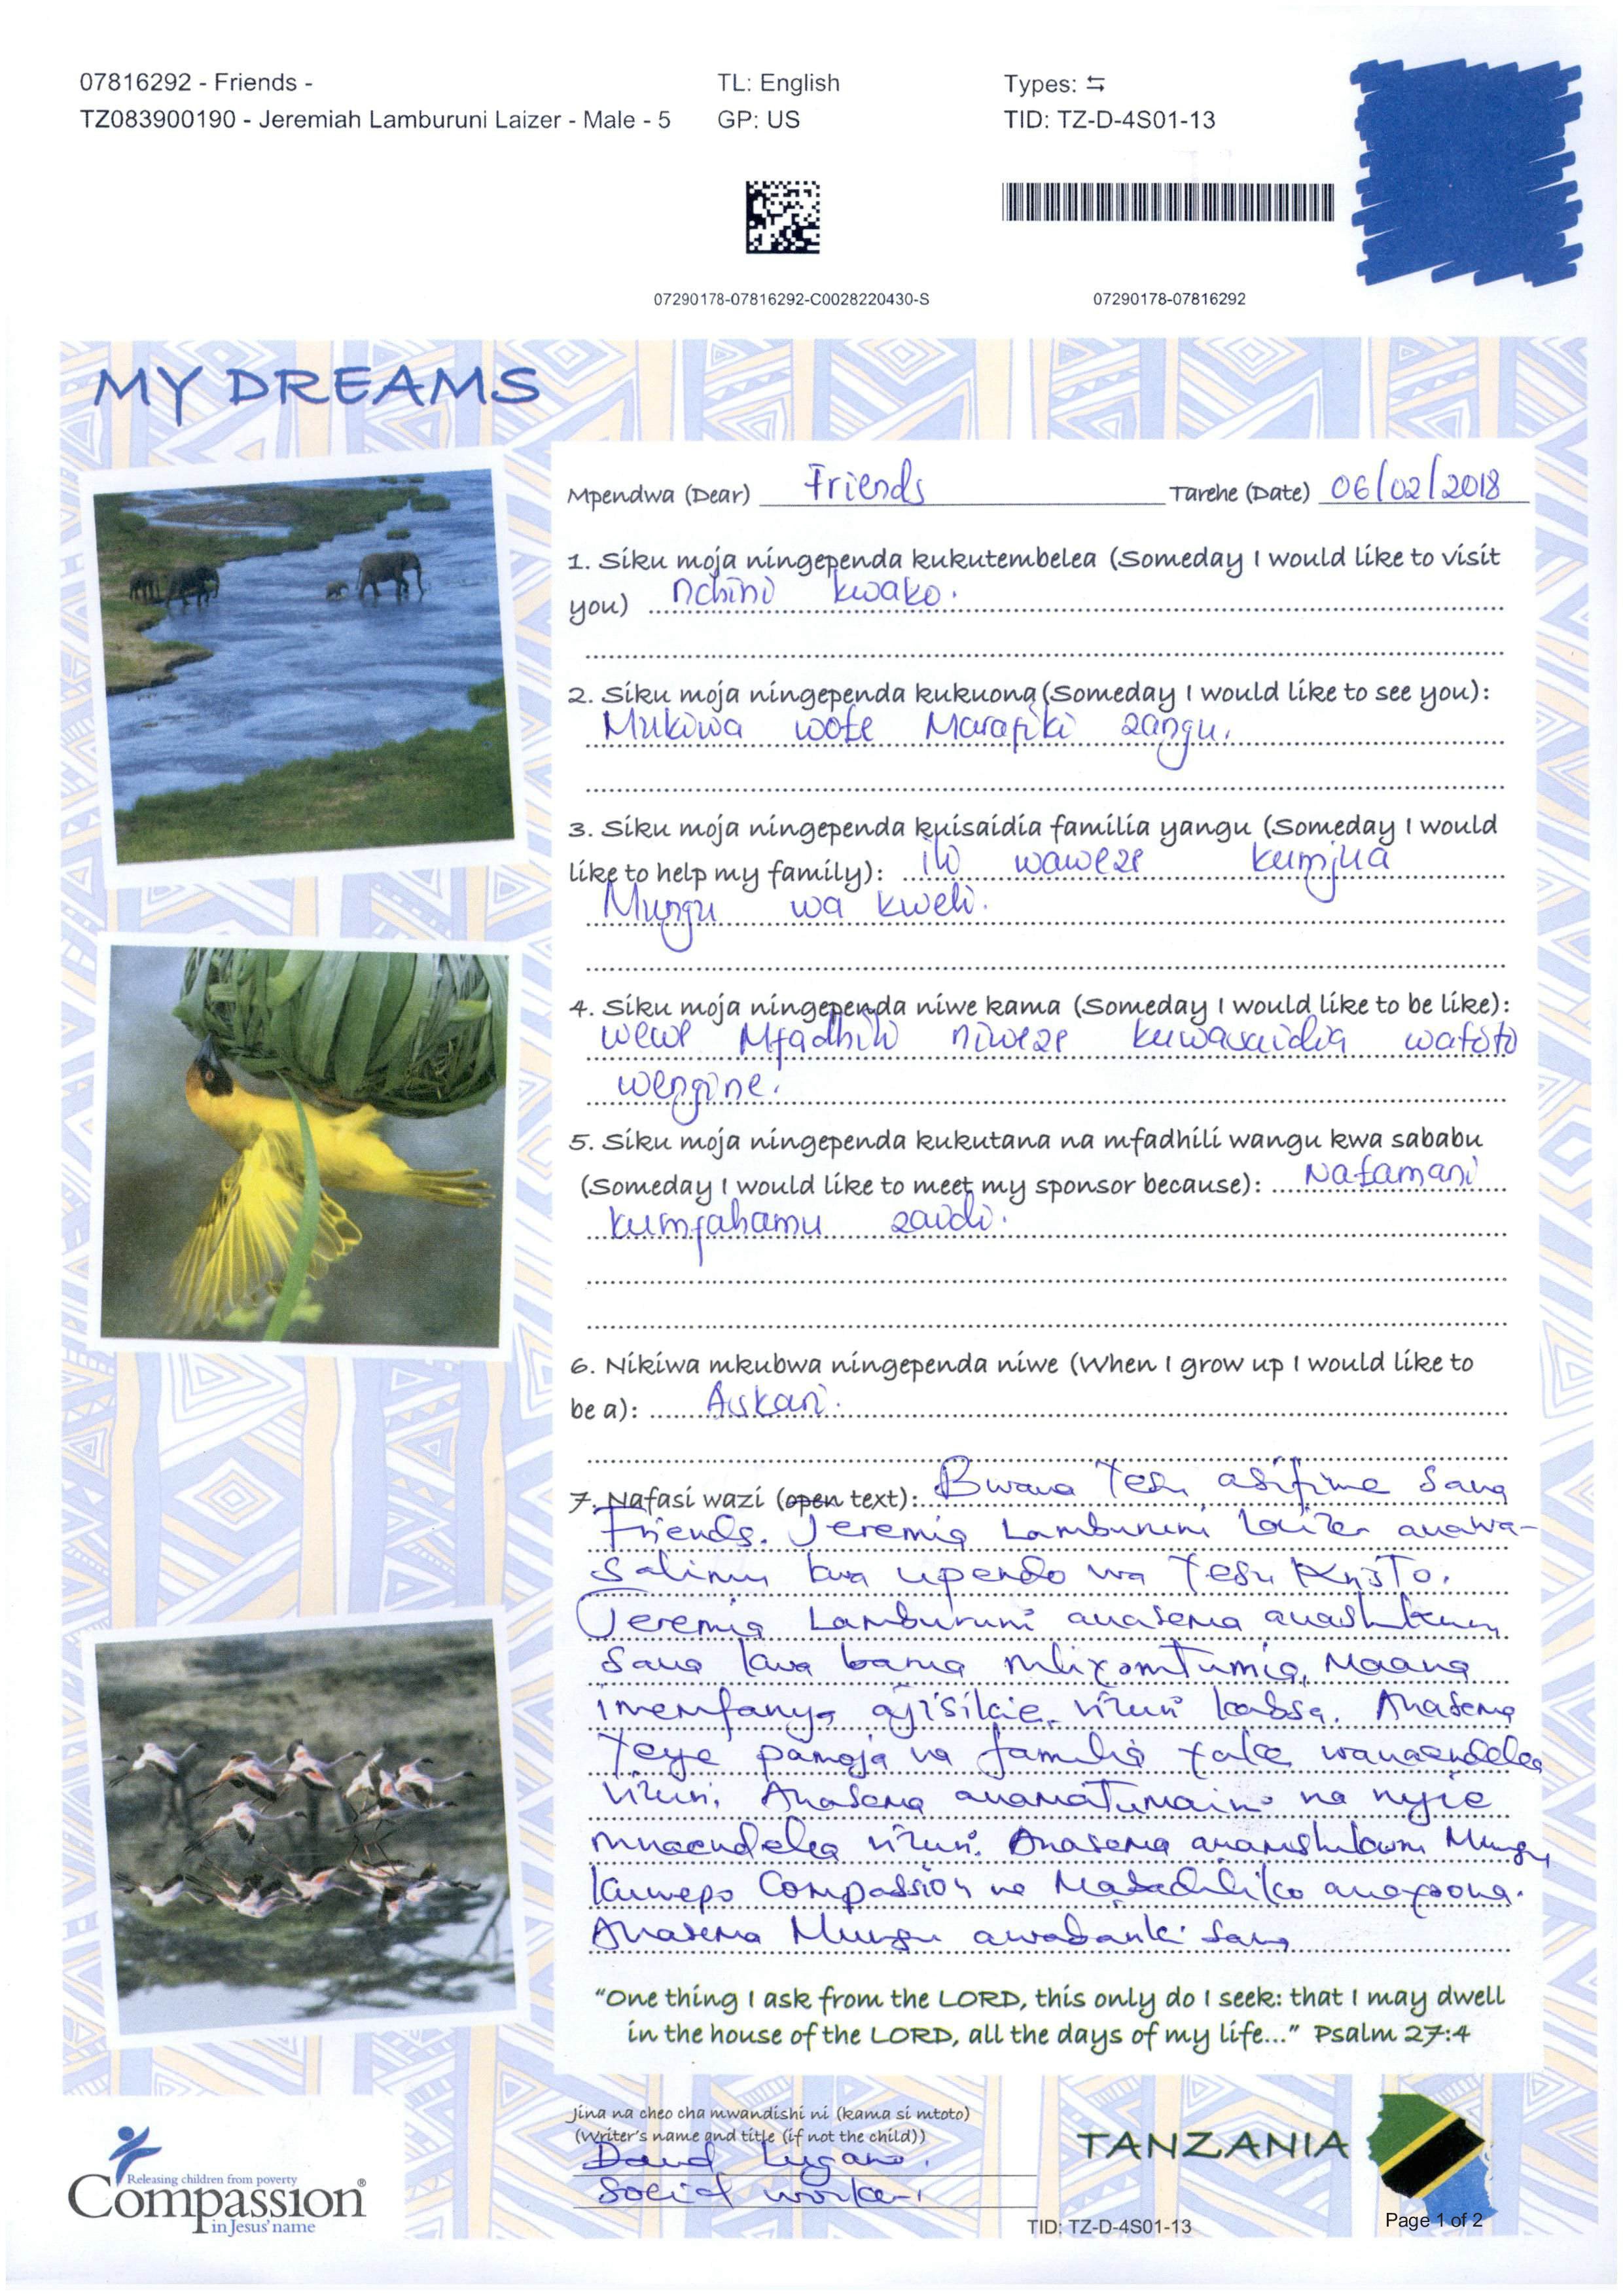 07816292 - Friends -
TL: English
Types: ⇆
TZ083900190 - Jeremiah Lamburuni Laizer - Male - 5
GP: US
TID: TZ-D-4S01-13
07290178-07816292-C0028220430-S
07290178-07816292
MY DREAMS
Mpendwa (Dear) Friends Tarehe (Date) 06/02/2018
1. Siku moja ningependa kukutembelea (Someday I would like to visit
you) nchini kwako.
2. Siku moja ningependa kukuona (Someday I would like to see you):
Mukiwa wote Marafiki zangu.
3. Siku moja ningependa kuisaidia familia yangu (Someday I would
like to help my family): ili waweze kumjua
Mungu wa kweli.
4. Siku moja ningependa niwe kama (Someday I would like to be like):
wewe Mfadhili niweze kuwasaidia watoto
wengine.
5. Siku moja ningependa kukutana na mfadhili wangu kwa sababu
(Someday I would like to meet my sponsor because): Natamani
kumfahamu zaidi.
6. Nikiwa mkubwa ningependa niwe (When I grow up I would like to
be a): Askari.
7. Nafasi wazi (open text): Bwana Yesu asifiwe sana
Friends. Jeremia Lamburuni Laizer anawa-
salimu kwa upendo wa Yesu Kristo.
Jeremia Lamburuni anasema anashkuru
sana kwa barua mliyomtumia, Maana
imemfanya ajisikie vizuri kabsa. Anasema
yeye pamoja na familia yake wanaendelea
vizuri. Anasema anamatumaini na nyie
mnaendelea vizuri. Anasema anamshukuru Mungu
kuwepo Compassion na Mabadiliko anayoona.
Anasema Mungu awabariki sana
"One thing I ask from the LORD, this only do I seek: that I may dwell
in the house of the LORD, all the days of my life..." Psalm 27:4
Jina na cheo cha mwandishi ni (kama si mtoto)
(Writer's name and title (if not the child))
David Lugano.
Social worker
Releasing children from poverty
Compassion®
in Jesus' name
TANZANIA
TID: TZ-D-4S01-13
Page 1 of 2